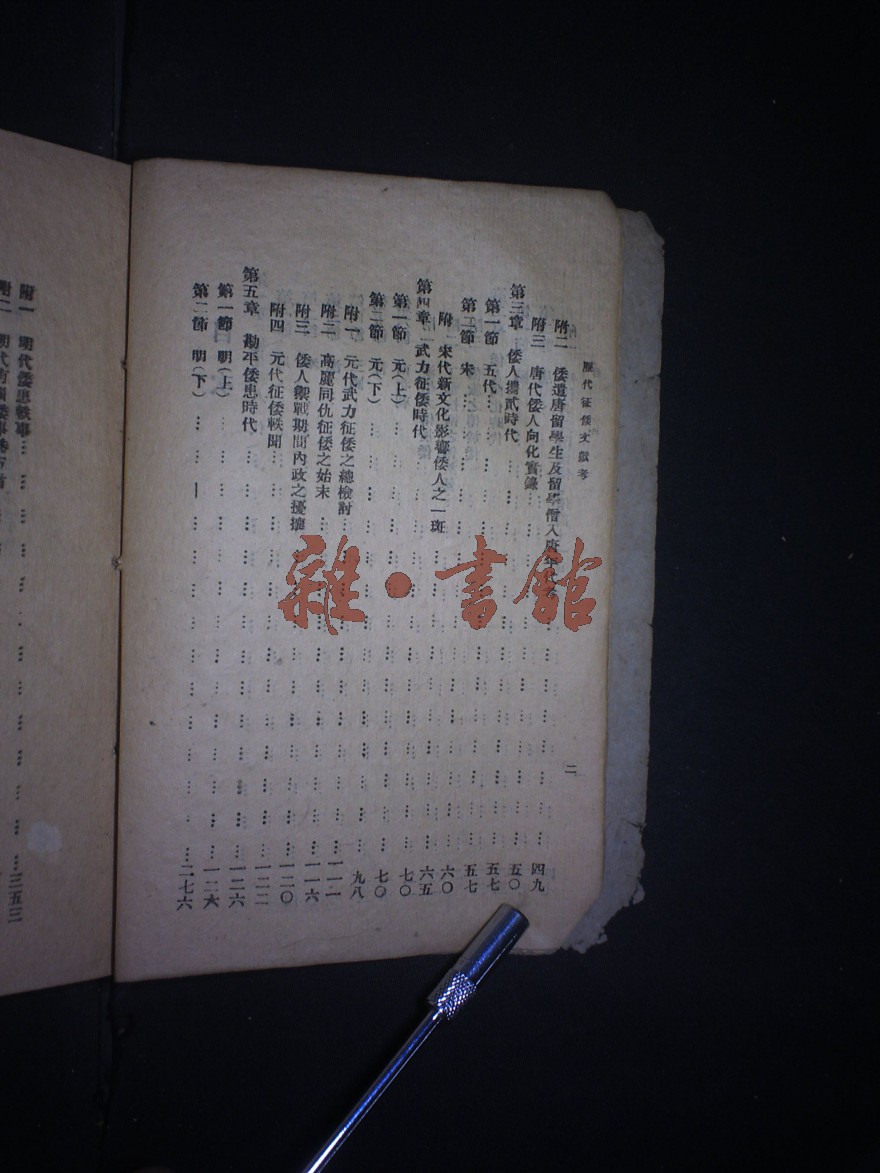 歷代征倭文獻考
二
附二 倭遣唐留學生及留學僧入唐年 … 四九
附三 唐代倭人向化實錄 … 五〇
第三章 倭人攜貳時代 … 五七
第一節 五代 … 五七
第二節 宋 … 六〇
附 宋代新文化影響倭人之一斑 … 六五
第四章 武力征倭時代 … 七〇
第一節 元(上) … 七〇
第二節 元(下) … 九八
附一 元代武力征倭之總檢討 … 一一一
附二 高麗同仇征倭之始末 … 一一六
附三 倭人禦戰期間內政之擾攘 … 一二〇
附四 元代征倭軼聞 … 一二二
第五章 勘平倭患時代 … 一二六
第一節 明(上) … 一二六
第二節 明(下) … 二七六
附一 明代倭患軼事 … 三五三
附二 明代
雜·書館